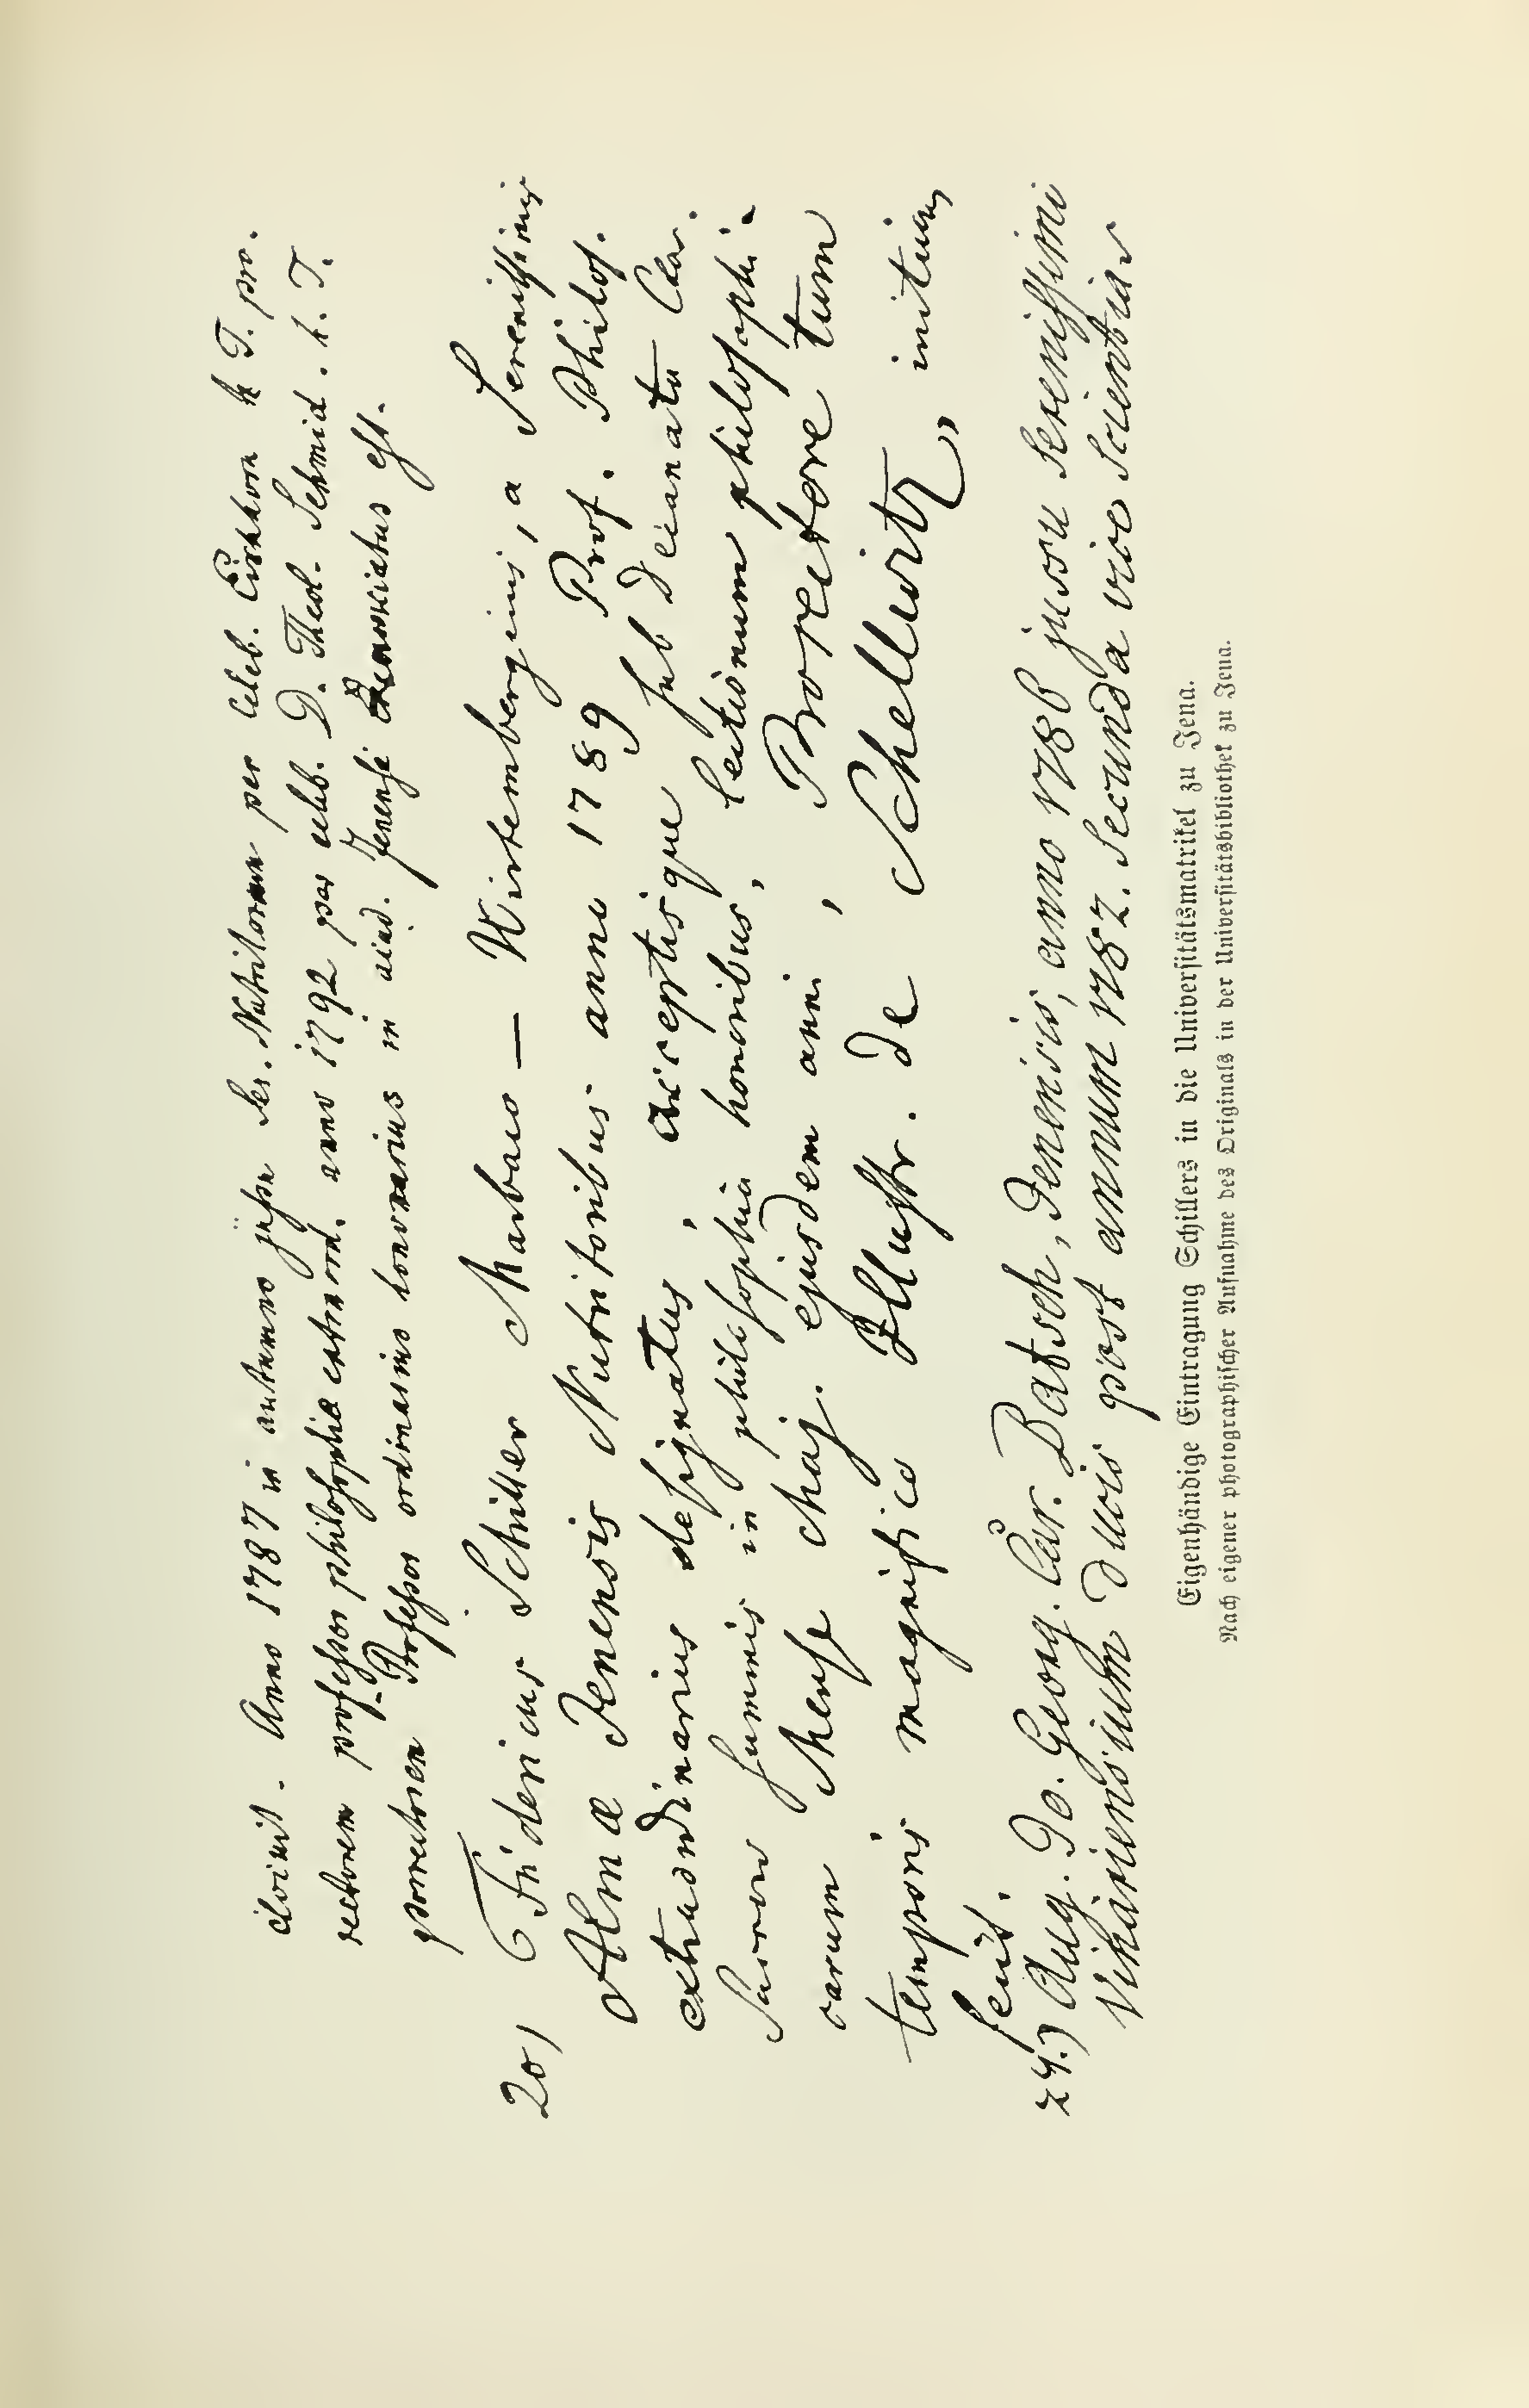 cloiut. Anno 1787 in autumno jussu Ser. Nutritorum per celeb. Eichhorn h. T. pro-
rectorem professor philosophiæ extraord. anno 1792 per celeb. D. Theol. Schmid. h. T.
prorectorem Professor ordinarius honorarius in acad. Jenensi renunciatus est.
20) Fridericus Schiller Marbaco — Wirtembergicus, a Serenissimis
Almæ Jenensis Nutritoribus anno 1789 Prof. Philos.
extraordinarius designatus, acceptisque sub decanatu Clar.
Succow summis in philosophia honoribus, lectionum philosophi-
carum Mense Maj. ejusdem anni, Prorectore tum
temporis magnifico Illustr. de Schellwitz, initium
fecit.
24.) Aug. Jo. Georg. Car. Batsch, Jenensis, anno 1786 jussu Serenissimi
Vinariensium Ducis post annum 1782. Secunda vice Scientiar
Eigenhändige Eintragung Schillers in die Universitätsmatrikel zu Jena.
Nach eigener photographischer Aufnahme des Originals in der Universitätsbibliothek zu Jena.